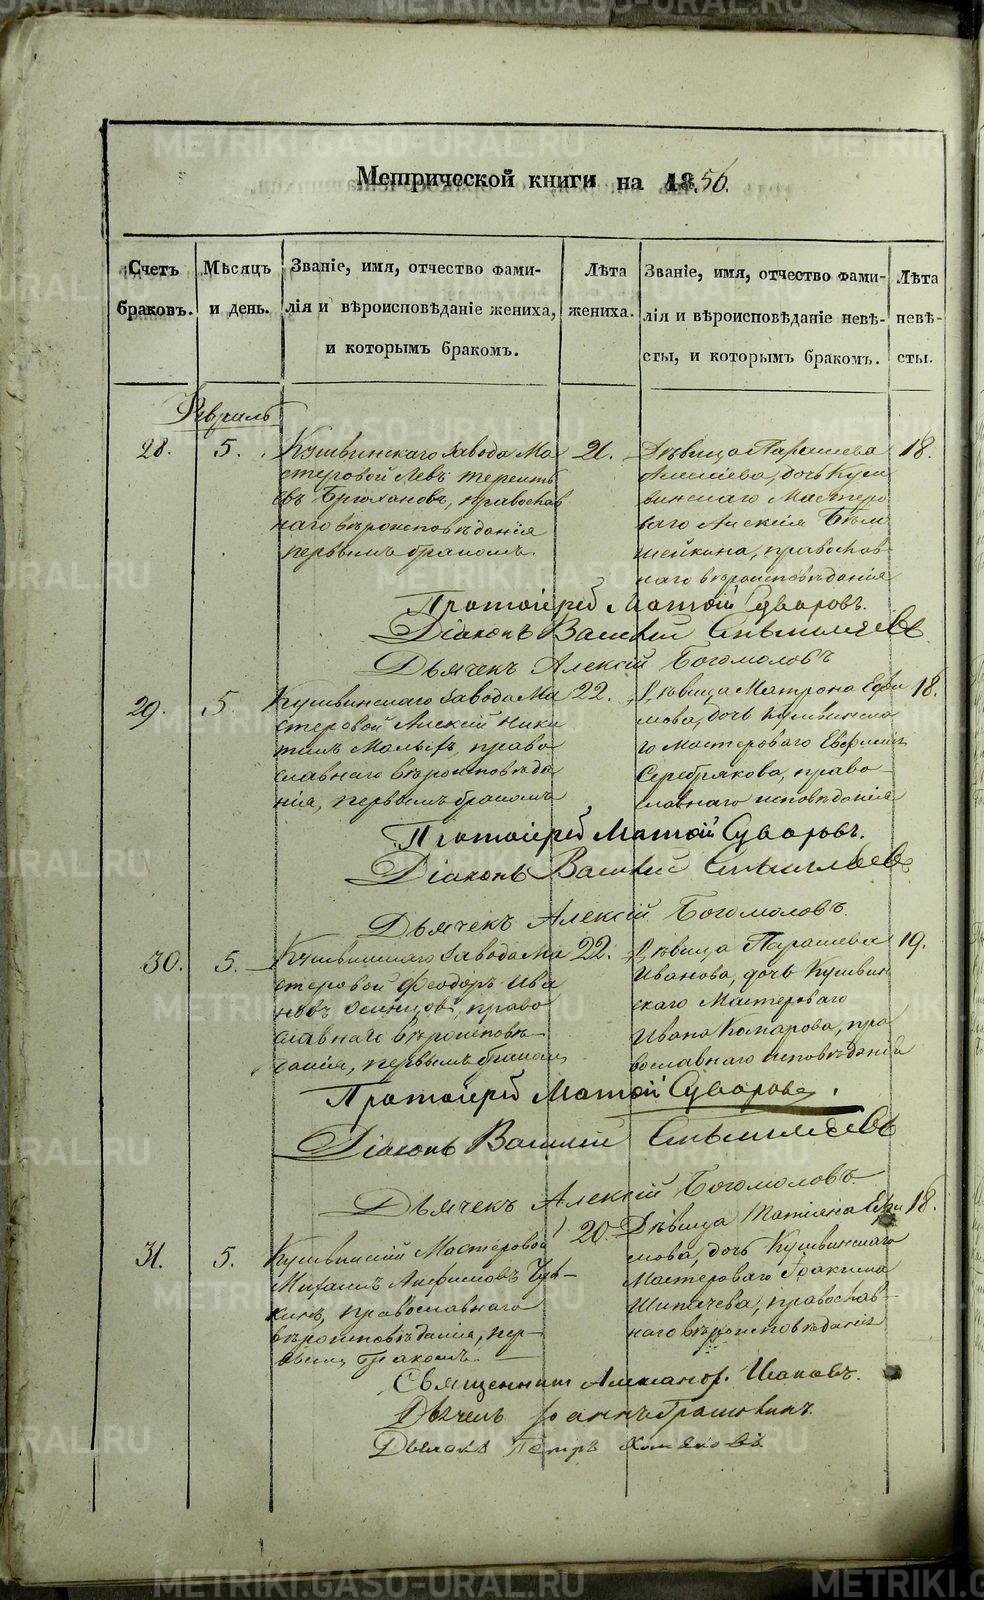 METRIKI.GASO-URAL.RU
Метрической книги на 1856.
Счетъ браковъ.
Мѣсяцъ и день.
Званіе, имя, отчество фами-
лія и вѣроисповѣданіе жениха,
и которымъ бракомъ.
Лѣта жениха.
Званіе, имя, отчество фами-
лія и вѣроисповѣданіе невѣ-
сты, и которымъ бракомъ.
Лѣта невѣ-
сты.
Февраль
28.
5.
Кушвинскаго завода Ма
стеровой Левъ Теренть
евъ Брюхановъ, православ
наго вѣроисповѣданія
первымъ бракомъ.
21.
Дѣвица Параскева
Алексіева, дочь Куш
винскаго Мастеро
ваго Алексія
православ
наго вѣроисповѣданія
18.
Протоіерей Матѳій Суворовъ.
Діаконъ Василій
Дьячекъ Алексій Богомоловъ
29.
5.
Кушвинскаго завода Ма
стеровой Алексій Ники
тинъ право
славнаго вѣроисповѣда
нія, первымъ бракомъ
22.
Дѣвица Матрона Ефи
мова, дочь Кушвинска
го Мастероваго
Серебрякова, право-
славнаго исповѣданія
18.
Протоіерей Матѳій Суворовъ.
Діаконъ Василій
Дьячекъ Алексій Богомоловъ.
30.
5.
Кушвинскаго завода Ма
стеровой Ѳеодоръ Ива
новъ Осинцовъ, право
славнаго вѣроисповѣ-
данія, первымъ бракомъ
22.
Дѣвица Параскева
Иванова, дочь Кушвин
скаго Мастероваго
Ивана Комарова, пра
вославнаго исповѣданія
19.
Протоіерей Матѳій Суворовъ.
Діаконъ Василій
Дьячекъ Алексій Богомоловъ
31.
5.
Кушвинскій Мастеровой
Михаилъ Анфимовъ
православнаго
вѣроисповѣданія, пер-
вымъ бракомъ.
20.
Дѣвица Татіяна Еки
мова, дочь Кушвинскаго
Мастероваго Іоакима
Шипичева, православ-
наго вѣроисповѣданія
18.
Священникъ Александр. Иоановъ.
Дьячекъ Іоаннъ
Петръ Хлыновъ